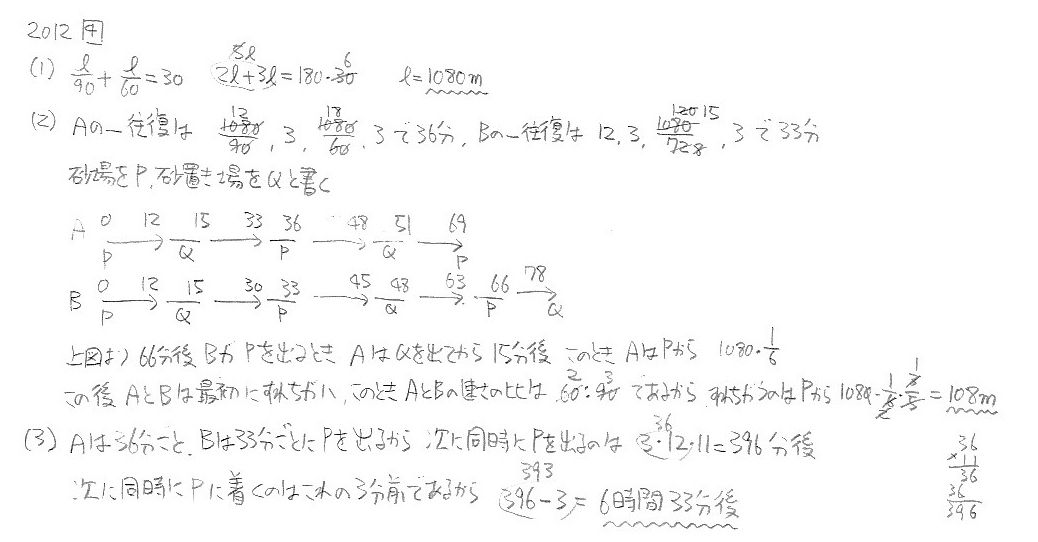 2012 4
(1) l/90 + l/60 = 30 5l 2l+3l=180・30 6 l=1080m
(2) Aの一往復は 12 1080/90, 3, 18 1080/60, 3で36分, Bの一往復は 12, 3, 120 15 1080/72 8, 3で33分
砂場をP, 砂置き場をQと書く
A 0 12 15 33 36 48 51 69
P Q P Q P
B 0 12 15 30 33 45 48 63 66 78
P Q P Q P Q
上図より 66分後 BがPを出るとき AはQを出てから15分後 このとき AはPから 1080・1/6
この後 AとBは最初にすれちがい, このとき AとBの速さの比は 2 60:90 3 であるから すれちがうのはPから 1080・1/6・2/5 = 108m
(3) Aは36分ごと, Bは33分ごとにPを出るから 次に同時にPを出るのは 36 3・12・11=396分後
次に同時にPに着くのはこれの3分前であるから 393 396-3= 6時間33分後
36
×11
36
36
396